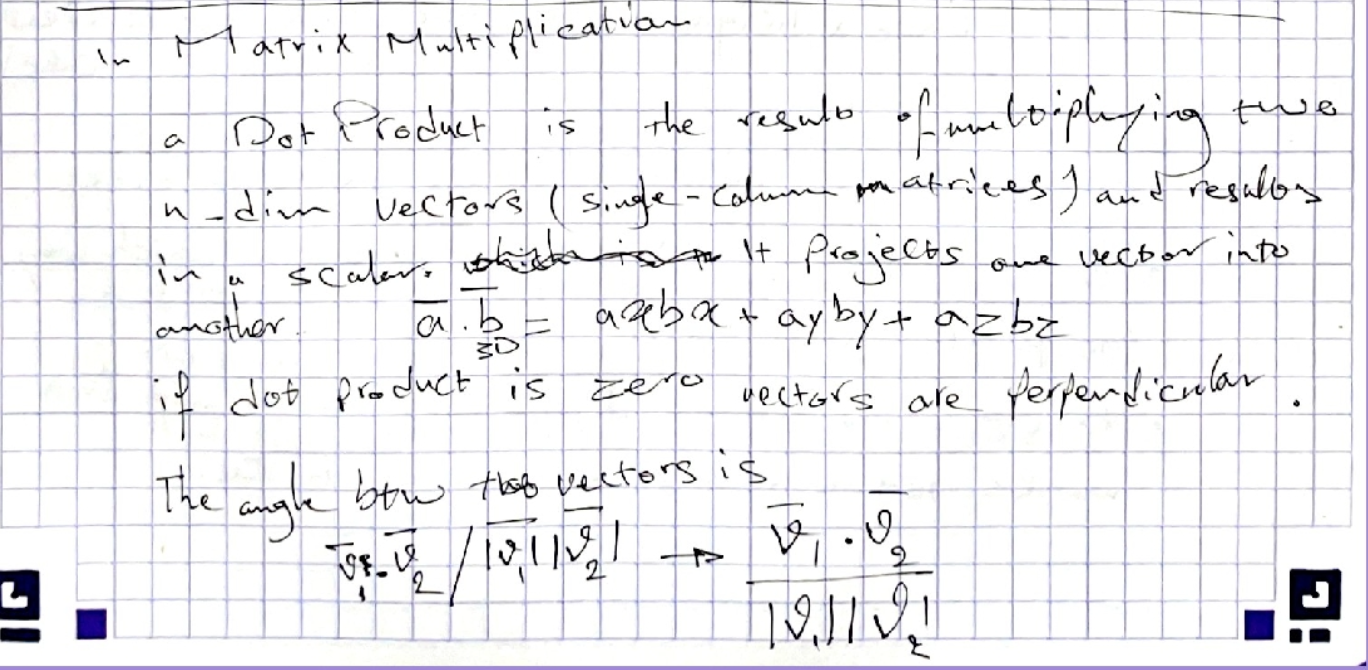 in Matrix Multiplication
a Dot Product is the result of multiplying two
n-dim vectors (single-column matrices) and results
in a scalar. It projects one vector into
another. a̅ . b̅ = axbx + ayby + azbz
3D
if dot product is zero vectors are perpendicular.
The angle btw two vectors is
v̅₁ . v̅₂ / |v̅₁| |v̅₂| → v̅₁ . v̅₂
|v₁| |v₂|